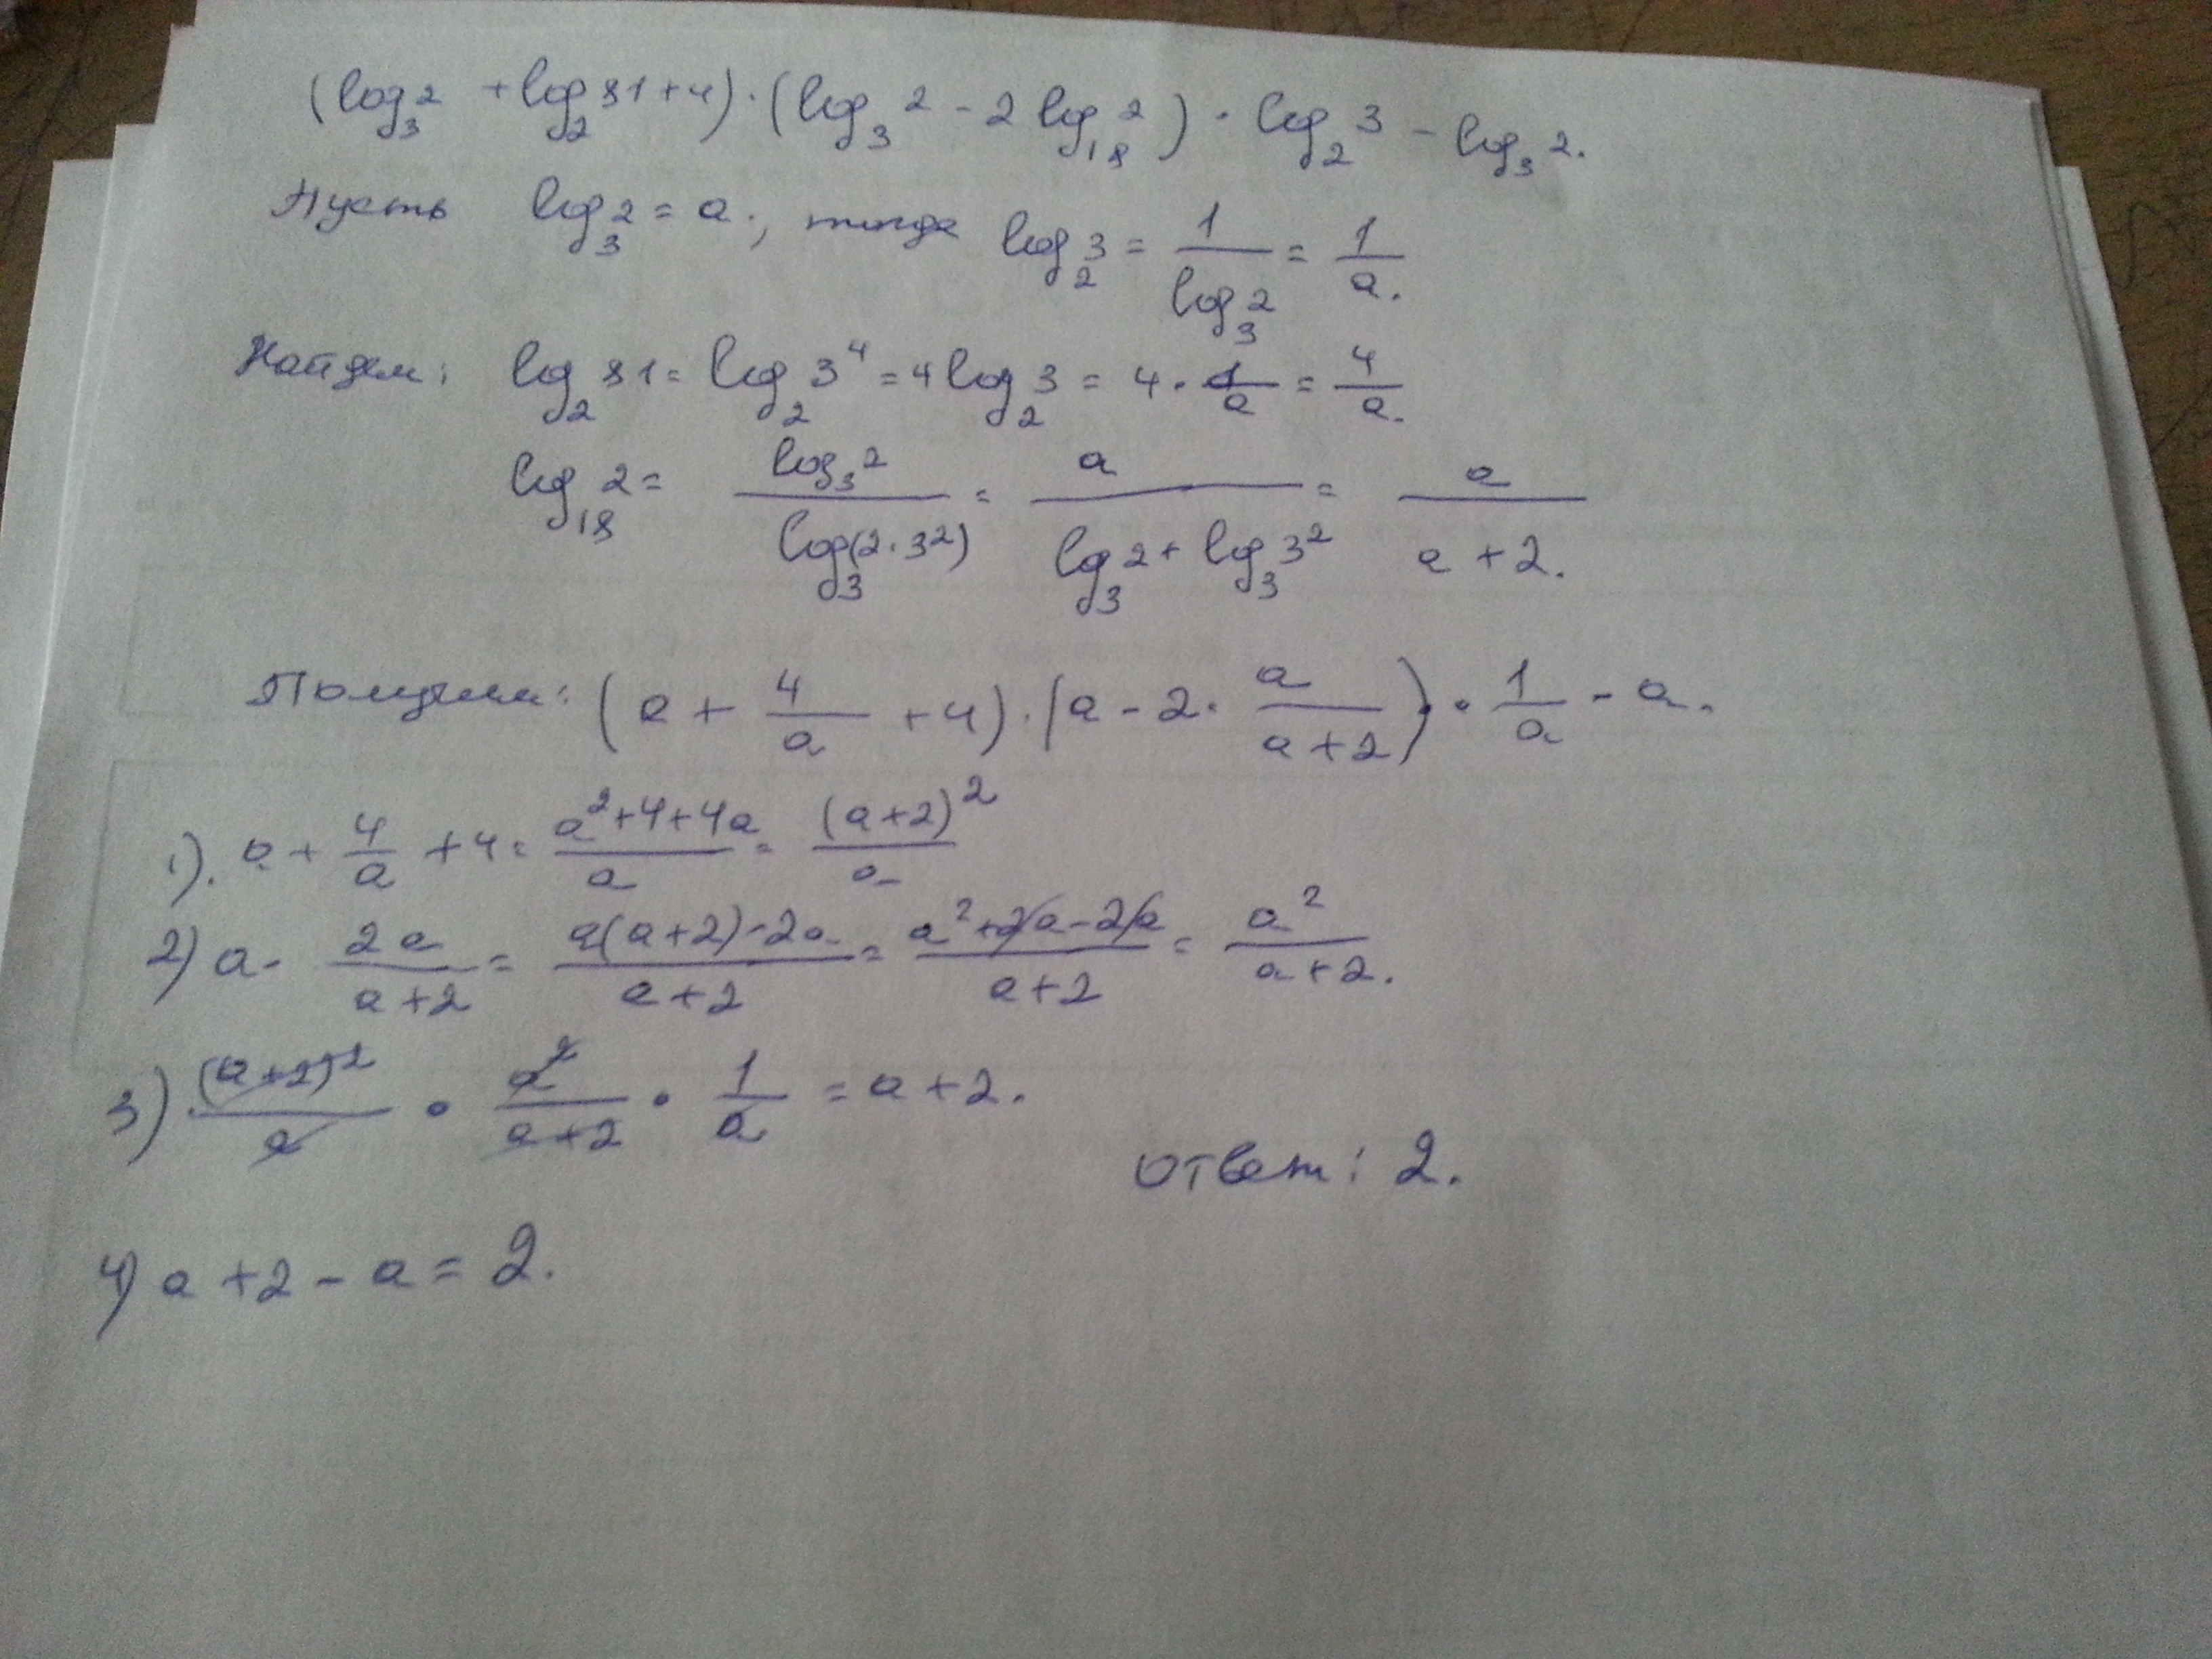 (log₃2 + log₂81+4)·(log₃2 - 2log₁₈2)·log₂3 - log₃2.
Пусть log₃2 = a., тогда log₂3 = 1/log₃2 = 1/a.
Найдем: log₂81 = log₂3⁴ = 4log₂3 = 4·1/a = 4/a.
log₁₈2 = log₃2/log₃(2·3²) = a/(log₃2 + log₃3²) = a/(a+2).
Получим: (a + 4/a + 4)·(a - 2·a/(a+2))·1/a - a.
1). a + 4/a + 4 = (a²+4+4a)/a = (a+2)²/a
2) a - 2a/(a+2) = (a(a+2)-2a)/(a+2) = (a²+2a-2a)/(a+2) = a²/(a+2).
3) (a+2)²/a · a²/(a+2) · 1/a = a+2.
Ответ: 2.
4) a+2-a = 2.